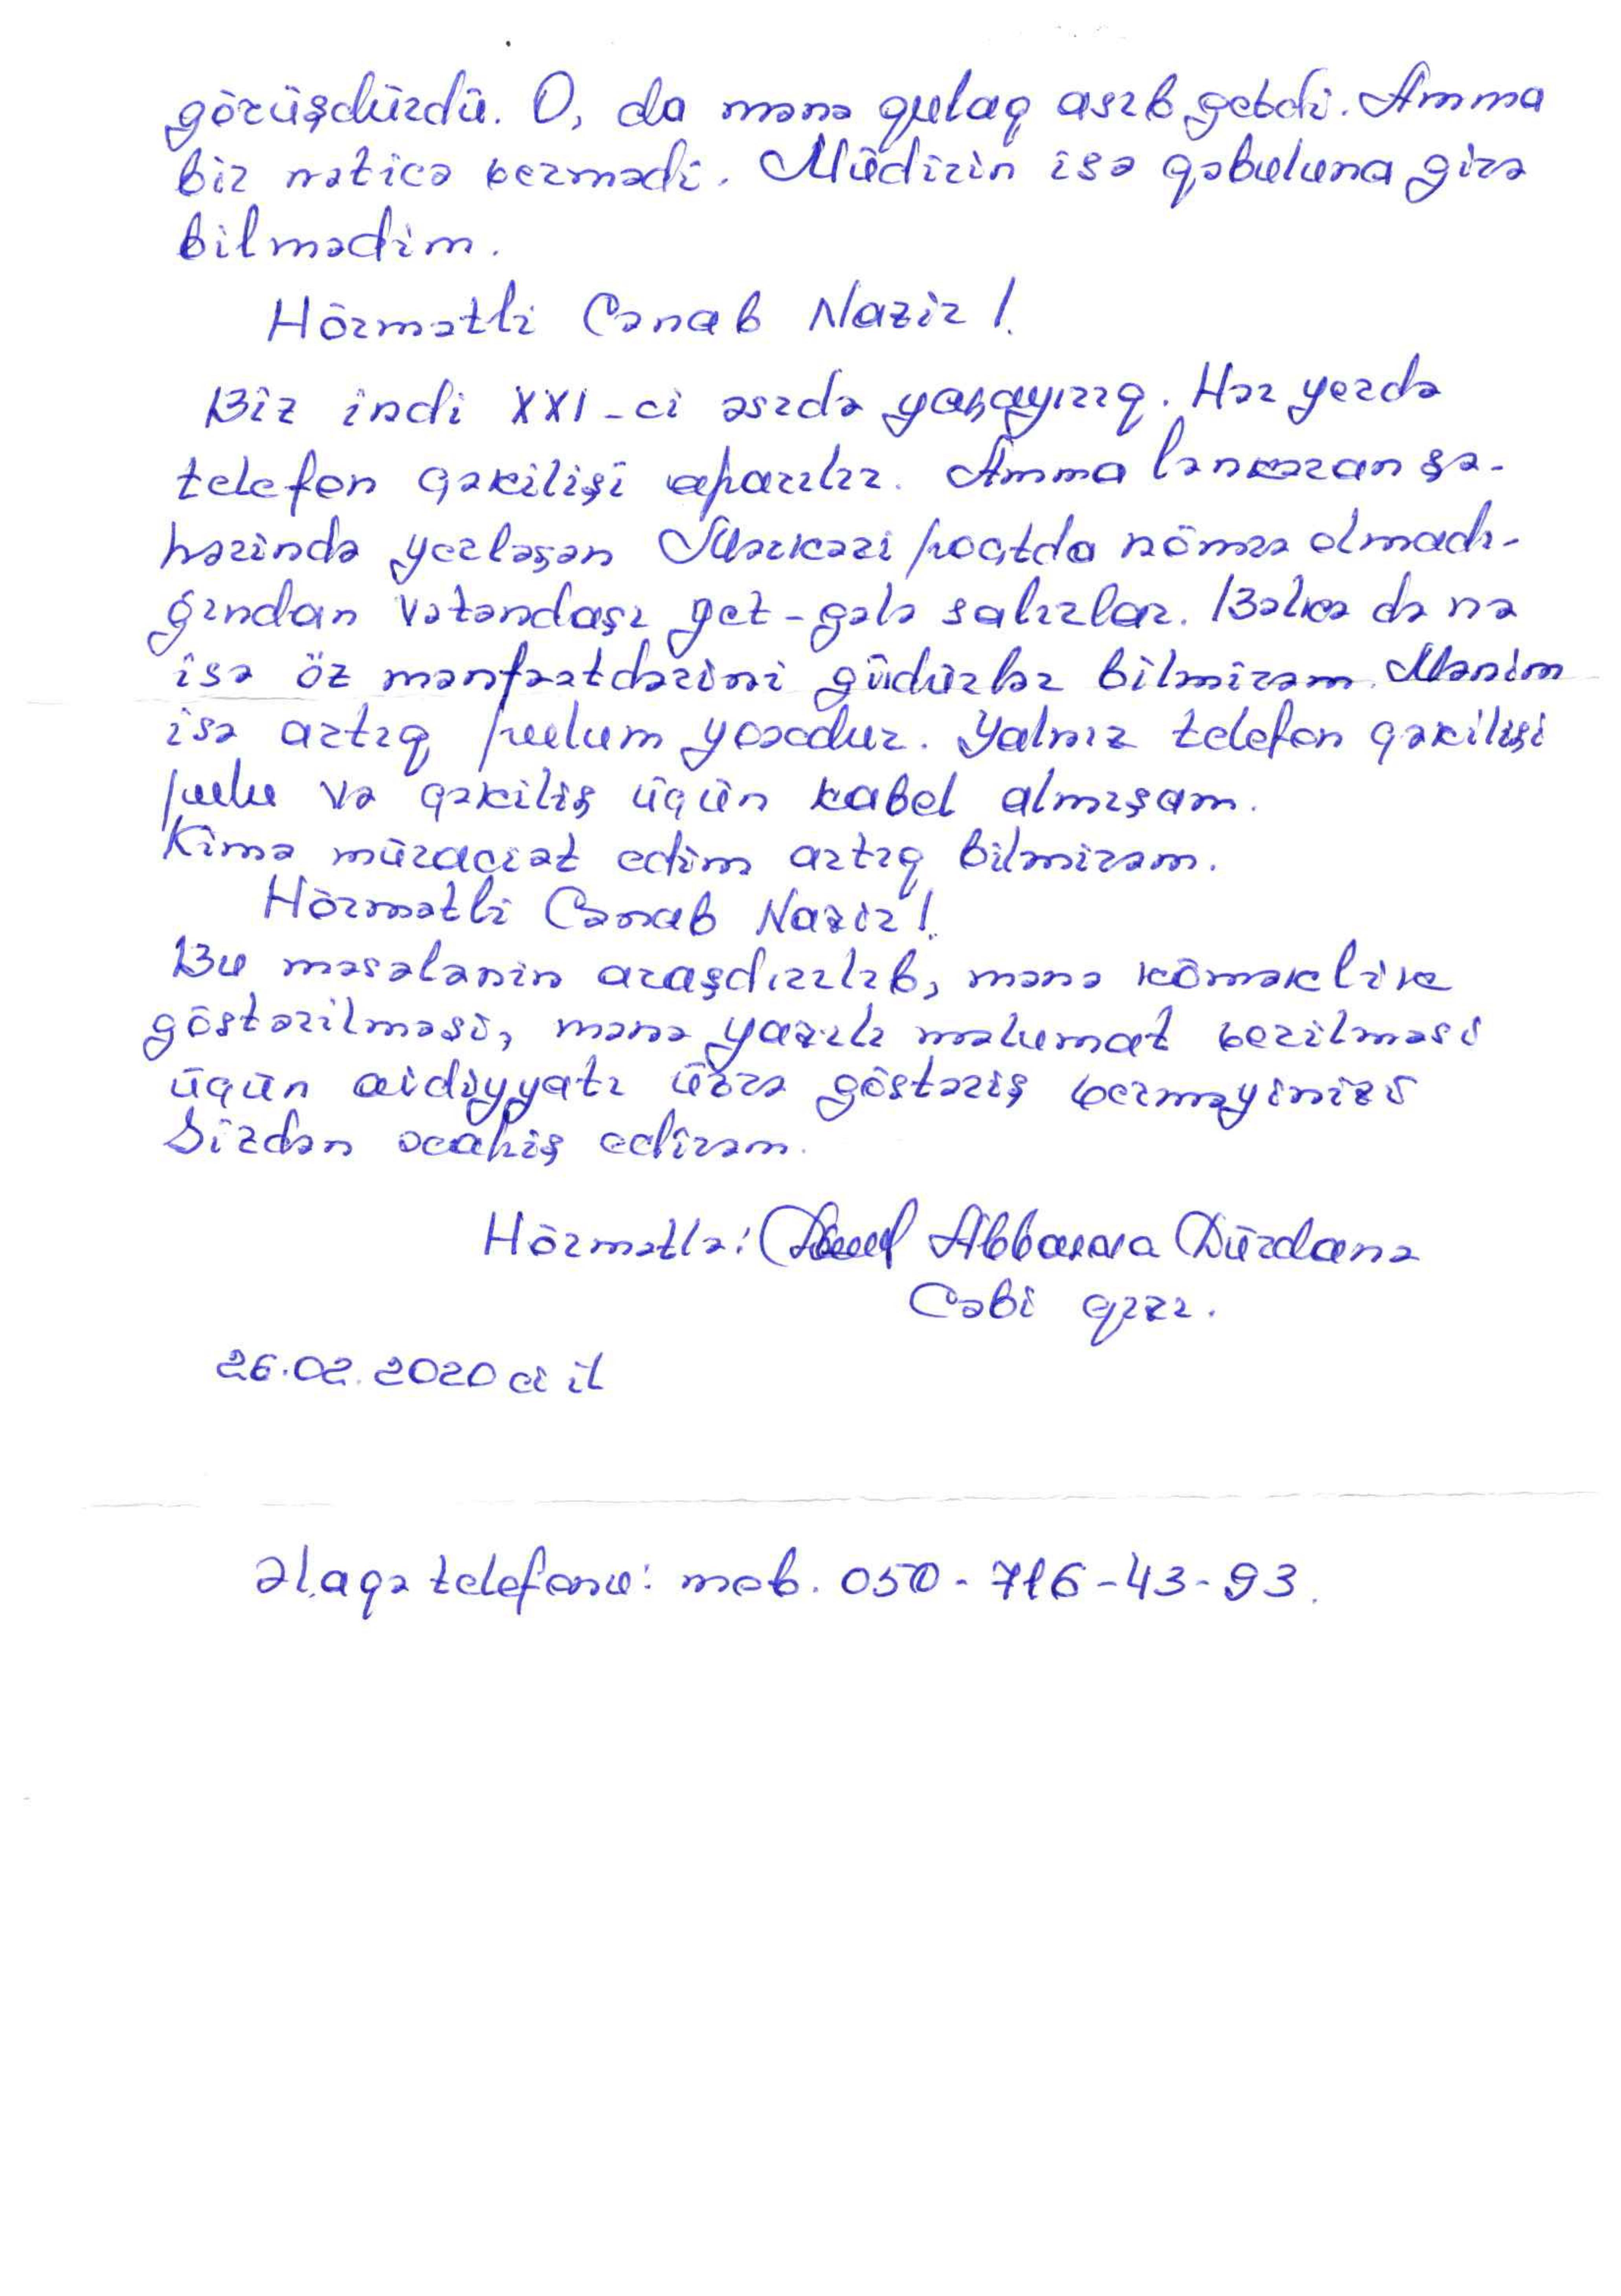 görüşdürdü. O, da mənə qulaq asıb getdi. Amma
bir nəticə vermədi. Müdirin isə qəbuluna girə
bilmədim.
Hörmətli Cənab Nazir!
Biz indi XXI-ci əsrdə yaşayırıq. Hər yerdə
telefon çəkilişi aparılır. Amma Lənkəran şə-
hərində yerləşən Mərkəzi poçtda nömrə olmadı-
ğından vətəndaşı get-gələ salırlar. Bəlkə də nə
isə öz mənfəətdərini güdürlər bilmirəm. Mənim
isə artıq pulum yoxdur. Yalnız telefon çəkilişi
pulu və çəkiliş üçün kabel almışam.
Kimə müraciət edim artıq bilmirəm.
Hörmətli Cənab Nazir!
Bu məsələnin araşdırılıb, mənə köməklik
göstərilməsi, mənə yazılı məlumat verilməsi
üçün aidiyyatı üzrə göstəriş verməyinizi
Sizdən xahiş edirəm.
Hörmətlə: Abbasova Dürdanə
Cəbi qızı.
26.02.2020 ci il
Əlaqə telefonu: mob. 050-716-43-93.